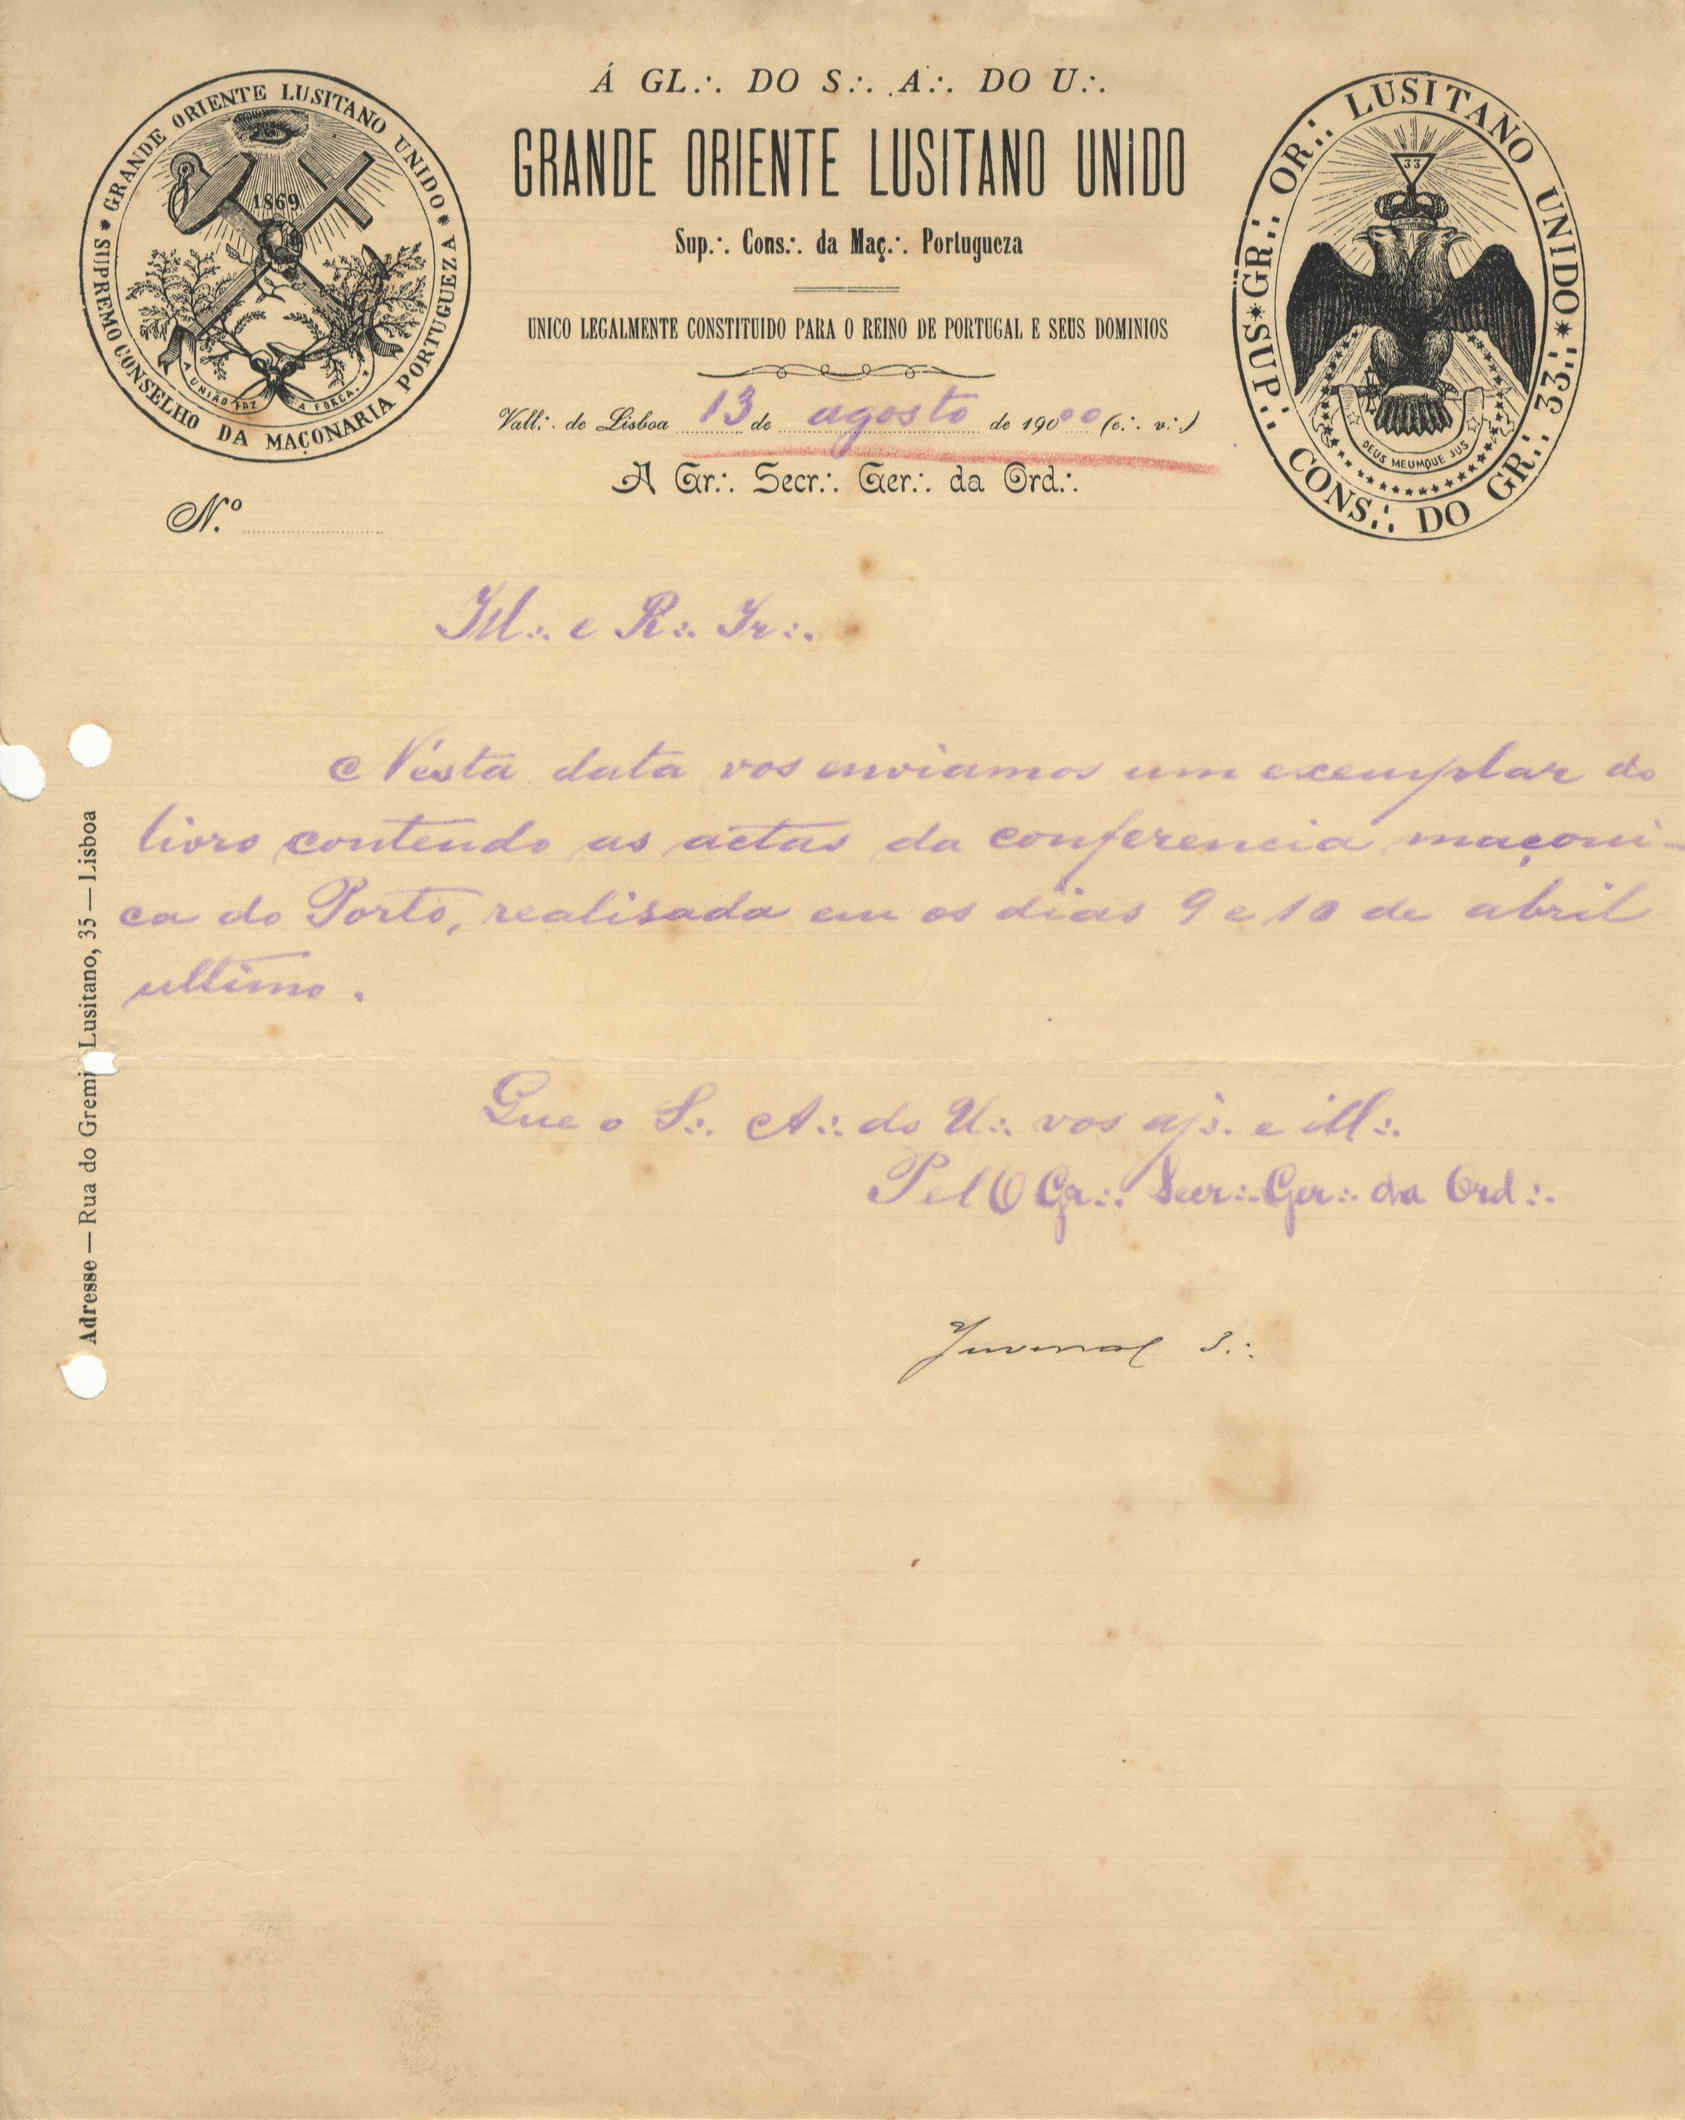 Á GL.·. DO S.·. A.·. DO U.·.
GRANDE ORIENTE LUSITANO UNIDO
Sup.·. Cons.·. da Maç.·. Portugueza
UNICO LEGALMENTE CONSTITUIDO PARA O REINO DE PORTUGAL E SEUS DOMINIOS
Vall.·. de Lisboa 13 de agosto de 1900 (e.·. v.·.)
A Gr.·. Secr.·. Ger.·. da Ord.·.
N.º
GRANDE ORIENTE LUSITANO UNIDO * SUPREMO CONSELHO DA MAÇONARIA PORTUGUEZA *
1869
A UNIÃO FAZ A FORÇA.
SUP.·. CONS.·. DO GR.·. 33.·. * GR.·. OR.·. LUSITANO UNIDO *
33
DEUS MEUMQUE JUS
Ill.·. e R.·. Ir.·.
N'ésta data vos enviamos um exemplar do
livro contendo as actas da conferencia maçoni-
ca do Porto, realisada em os dias 9 e 10 de abril
ultimo.
Que o S.·. A.·. do U.·. vos aj.·. e ill.·.
Pel O Gr.·. Secr.·. Ger.·. da Ord.·.
Juvenal 3.·.
Adresse — Rua do Gremi Lusitano, 35 — Lisboa